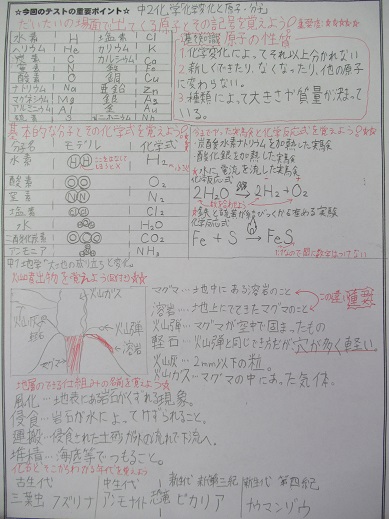 ☆今回のテストの重要ポイント☆
中2化学「化学変化と原子・分子」
だいたいの場面で出てくる原子とその記号を覚えよう!
水素 H 塩素 Cl
ヘリウム He カリウム K
炭素 C カルシウム Ca
窒素 N 鉄 Fe
酸素 O 銅 Cu
ナトリウム Na 亜鉛 Zn
マグネシウム Mg 銀 Ag
アルミニウム Al 金 Au
硫黄 S
原子の性質
1 化学変化によって、それ以上分かれない
2 新しくできたり、なくなったり、他の原子に変わらない。
3 種類によって大きさや質量が決まっている。
基本的な分子とその化学式を覚えよう
分子名 モデル 化学式
水素 H H H₂
酸素 O O O₂
窒素 N N N₂
塩素 Cl₂
水 H₂O
二酸化炭素 CO₂
アンモニア NH₃
・炭酸水素ナトリウムを加熱した実験
・酸化銀を加熱した実験
水に電流を流した実験
化学反応式
2H₂O → 2H₂+O₂
鉄と硫黄が結びつく実験
化学反応式
Fe + S → FeS
火山噴出物を覚えよう
火山ガス
火山灰
火山弾
溶岩
マグマ
マグマ…地中にある溶岩のこと
溶岩…地上にでてきたマグマのこと
この違い重要
火山弾…マグマが空中で固まったもの
軽石…火山弾と同じでき方だが、穴が多く軽い
火山灰…2mm以下の粒。
火山ガス…マグマの中にあった気体。
風化…地表にある岩石がくずれる現象。
侵食…岩石が水によってけずられること。
運搬…侵食された土砂が川の流れで下流へ。
堆積…海底等でつもること。
古生代 中生代 新生代 新第三紀 新生代 第四紀
三葉虫 フズリナ アンモナイト 恐竜 ビカリア ナウマンゾウ